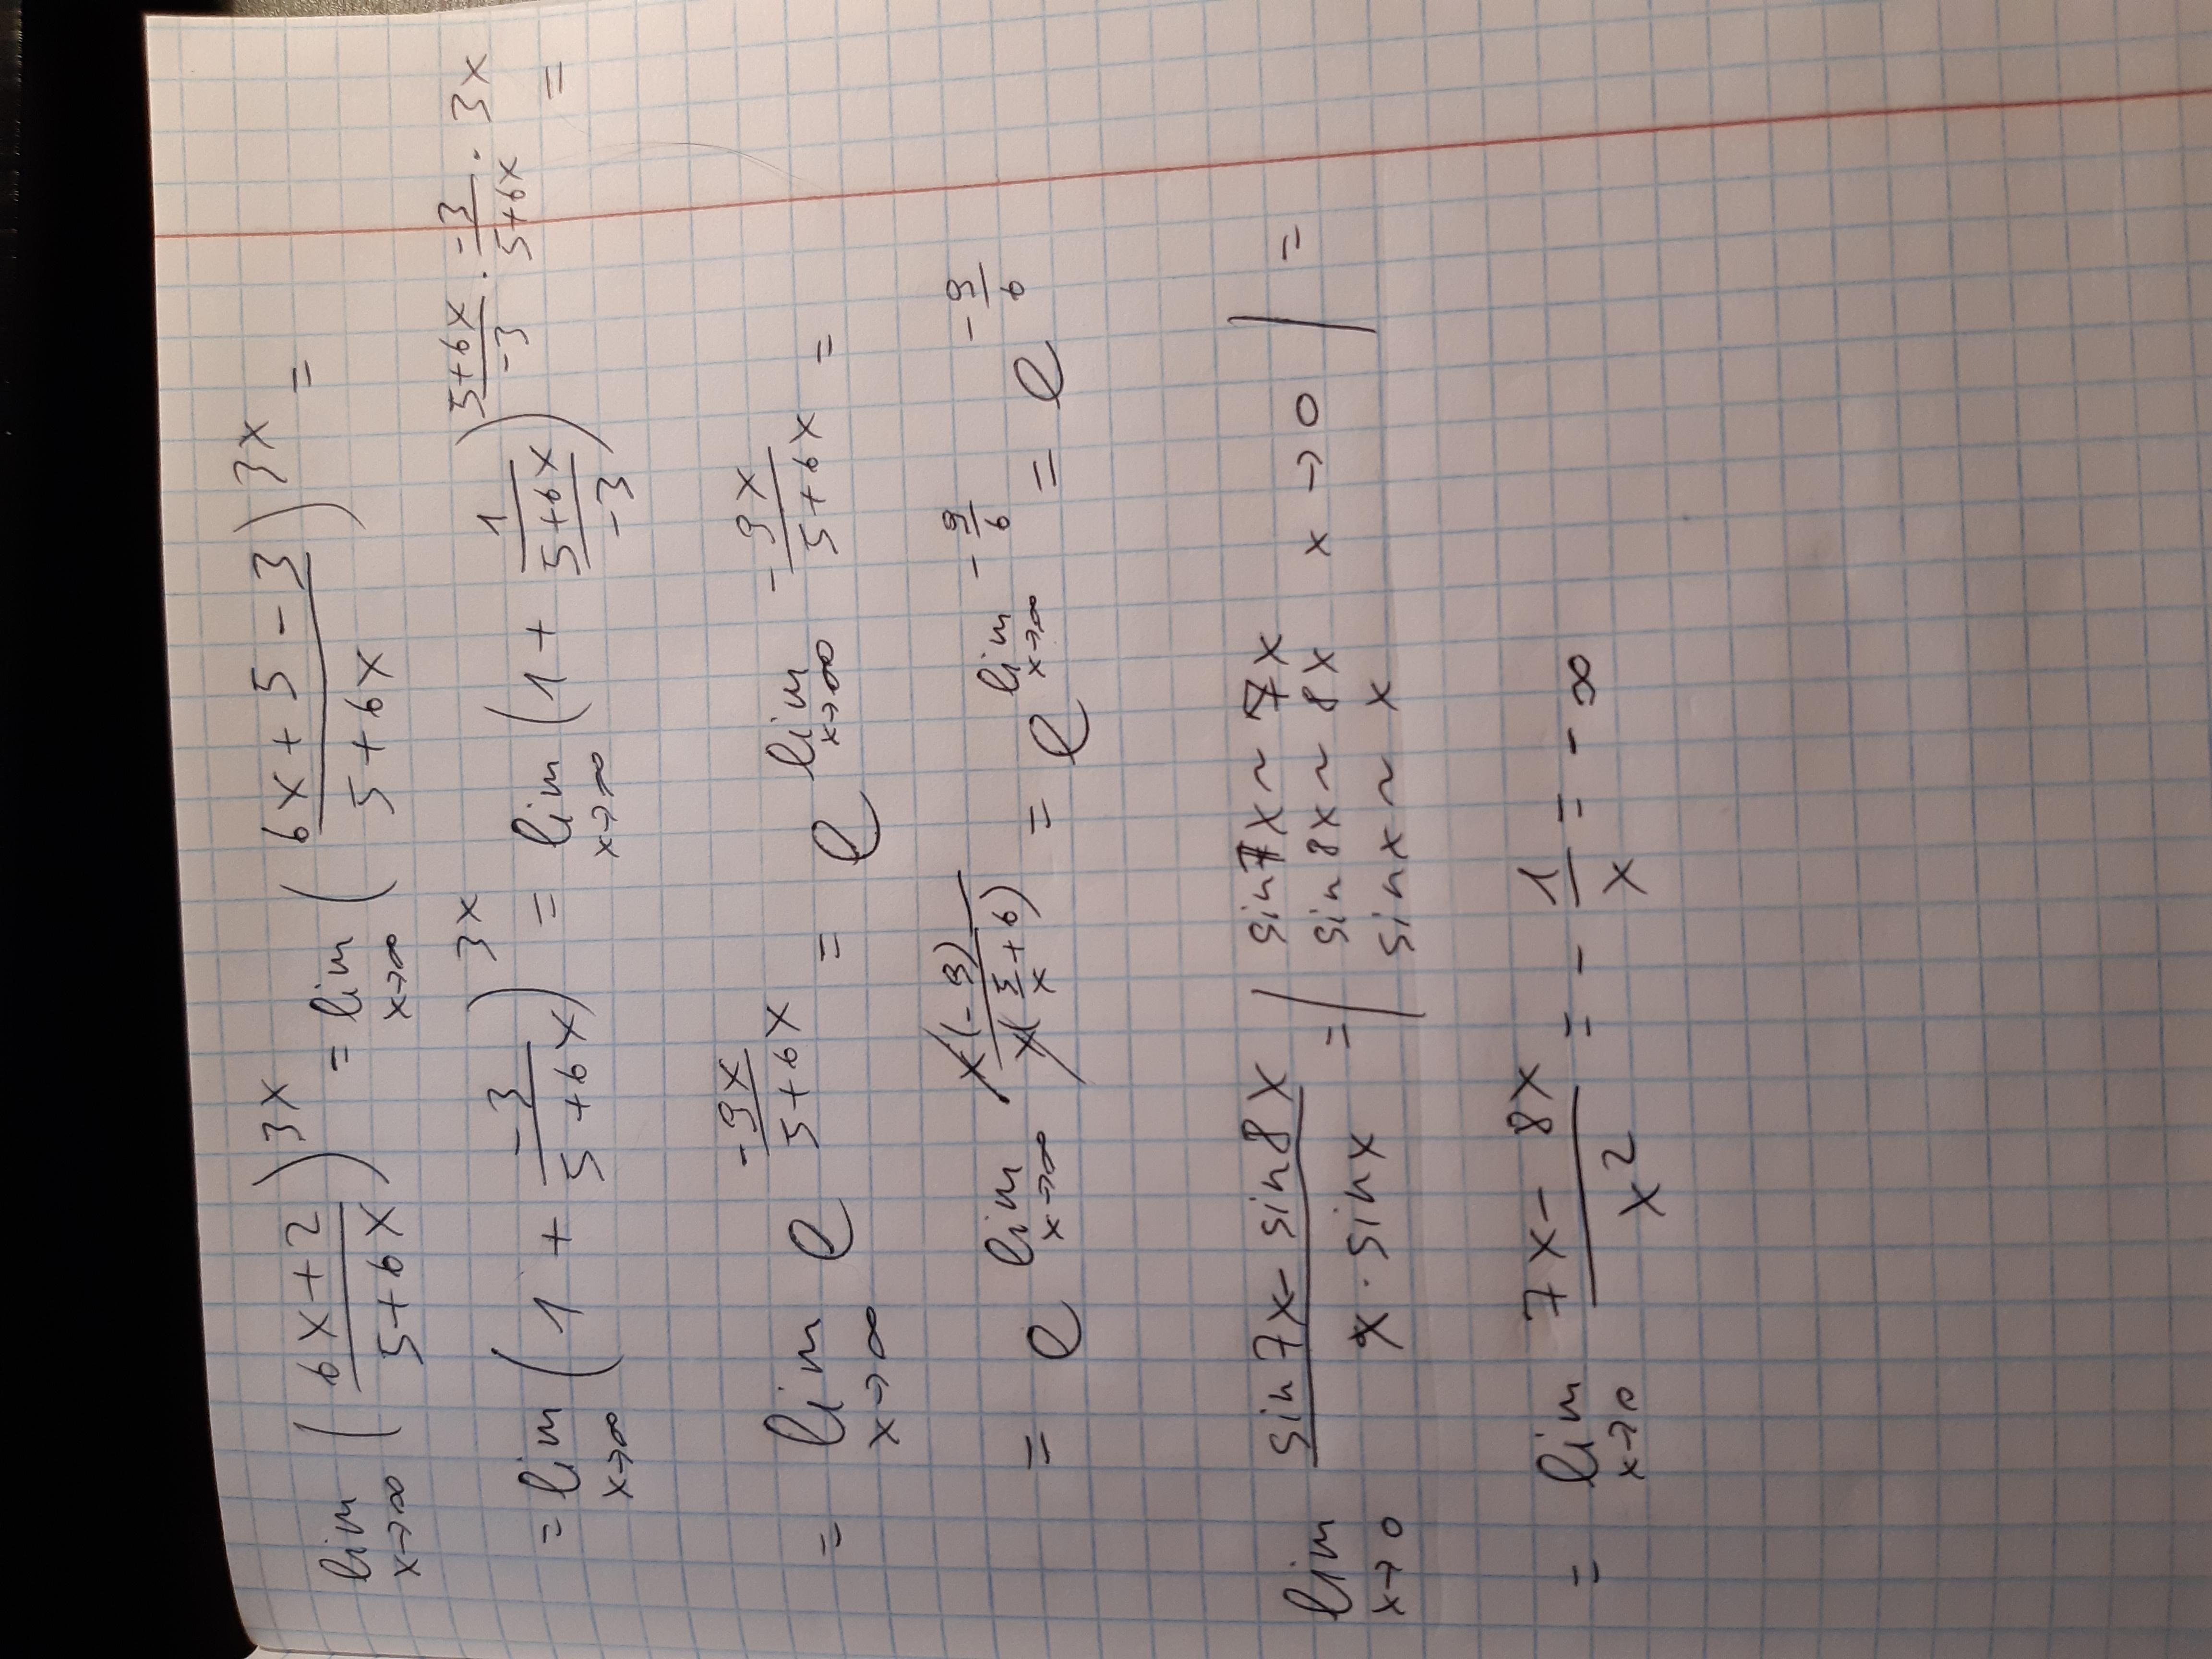 lim x→∞ ( (6x+2)/(5+6x) )^(3x) = lim x→∞ ( (6x+5-3)/(5+6x) )^(3x) =
= lim x→∞ ( 1 + (-3)/(5+6x) )^(3x) = lim x→∞ ( 1 + 1/((5+6x)/(-3)) )^((5+6x)/(-3) · (-3)/(5+6x) · 3x) =
= lim x→∞ e^(-9x/(5+6x)) = e^(lim x→∞ -9x/(5+6x)) =
= e^(lim x→∞ x(-9)/(x(5/x+6))) = e^(lim x→∞ -9/6) = e^(-9/6)
lim x→0 (sin7x-sin8x)/(x·sinx) = | sin7x ~ 7x sin8x ~ 8x sinx ~ x x→0 | =
= lim x→0 (7x-8x)/x² = -1/x = -∞